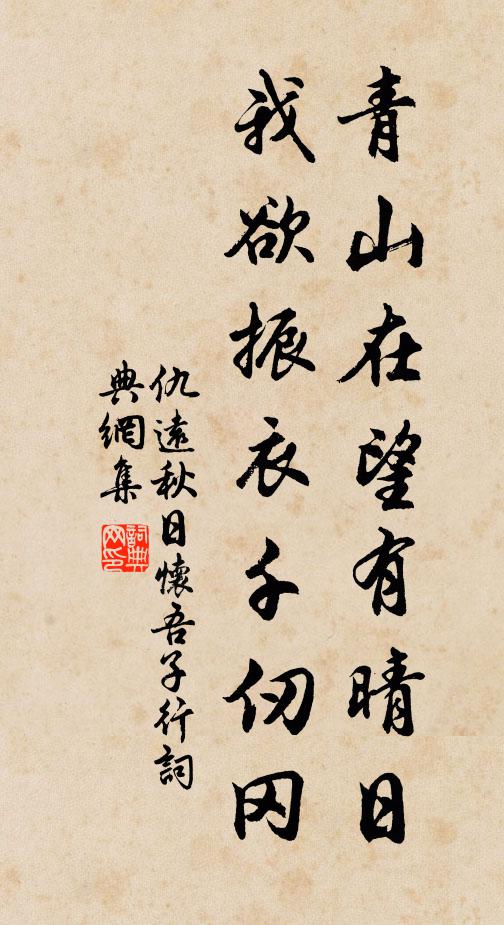 青山在望有晴日
我欲振衣千仞冈
仇遠秋日懷吾子行詞
典網集
詞典网印